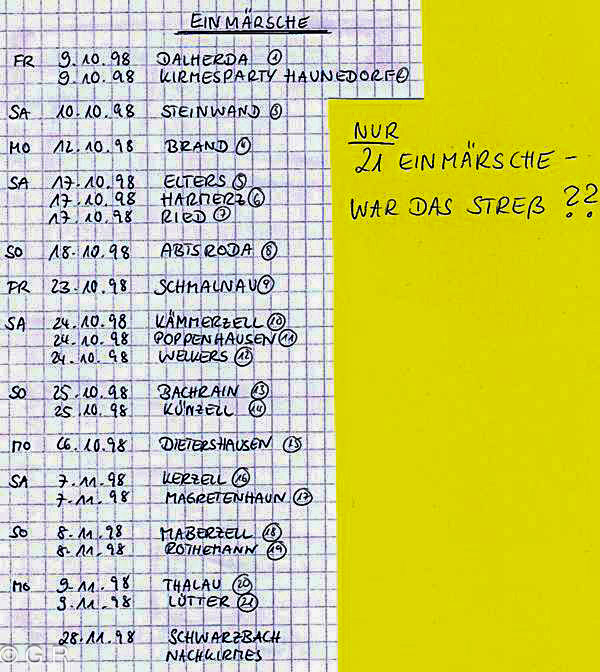 EINMÄRSCHE
FR 9.10.98 DALHERDA ①
9.10.98 KIRMESPARTY HAUNEDORF ②
SA 10.10.98 STEINWAND ③
MO 12.10.98 BRAND ④
SA 17.10.98 ELTERS ⑤
17.10.98 HARMERZ ⑥
17.10.98 RIED ⑦
SO 18.10.98 ABTSRODA ⑧
FR 23.10.98 SCHMALNAU ⑨
SA 24.10.98 KÄMMERZELL ⑩
24.10.98 POPPENHAUSEN ⑪
24.10.98 WELKERS ⑫
SO 25.10.98 BACHRAIN ⑬
25.10.98 KÜNZELL ⑭
MO 26.10.98 DIETERSHAUSEN ⑮
SA 7.11.98 KERZELL ⑯
7.11.98 MAGRETENHAUN ⑰
SO 8.11.98 MABERZELL ⑱
8.11.98 ROTHEMANN ⑲
MO 9.11.98 THALAU ⑳
9.11.98 LÜTTER ㉑
28.11.98 SCHWARZBACH
NACHKIRMES
NUR
21 EINMÄRSCHE -
WAR DAS STREß ??
© G.R.